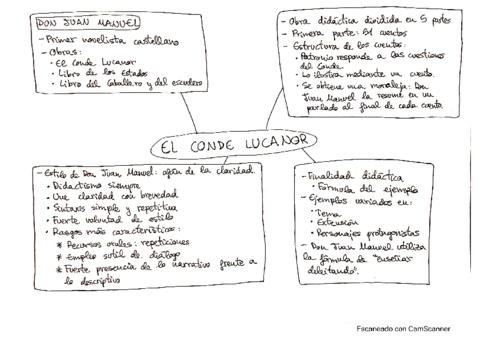 DON JUAN MANUEL
- Primer novelista castellano
- Obras:
• El Conde Lucanor
• Libro de los Estados
• Libro del Caballero y del escudero
- Obra didáctica dividida en 5 partes
- Primera parte: 51 cuentos
- Estructura de los cuentos:
• Patronio responde a las cuestiones
del Conde.
• Lo ilustra mediante un cuento.
• Se obtiene una moraleja: Don
Juan Manuel la resume en un
pareado al final de cada cuento.
EL CONDE LUCANOR
- Estilo de Don Juan Manuel: afán de la claridad
• Didactismo siempre
• Une claridad con brevedad
• Sintaxis simple y repetitiva
• Fuerte voluntad de estilo
• Rasgos más característicos:
* Recursos orales: repeticiones
* Empleo sutil de diálogo
* Fuerte presencia de lo narrativo frente a
lo descriptivo
- Finalidad didáctica
• Fórmula del ejemplo
- Ejemplos variados en:
• Tema
• Extensión
• Personajes protagonistas
- Don Juan Manuel utiliza
la fórmula de "enseñar
deleitando".
Escaneado con CamScanner